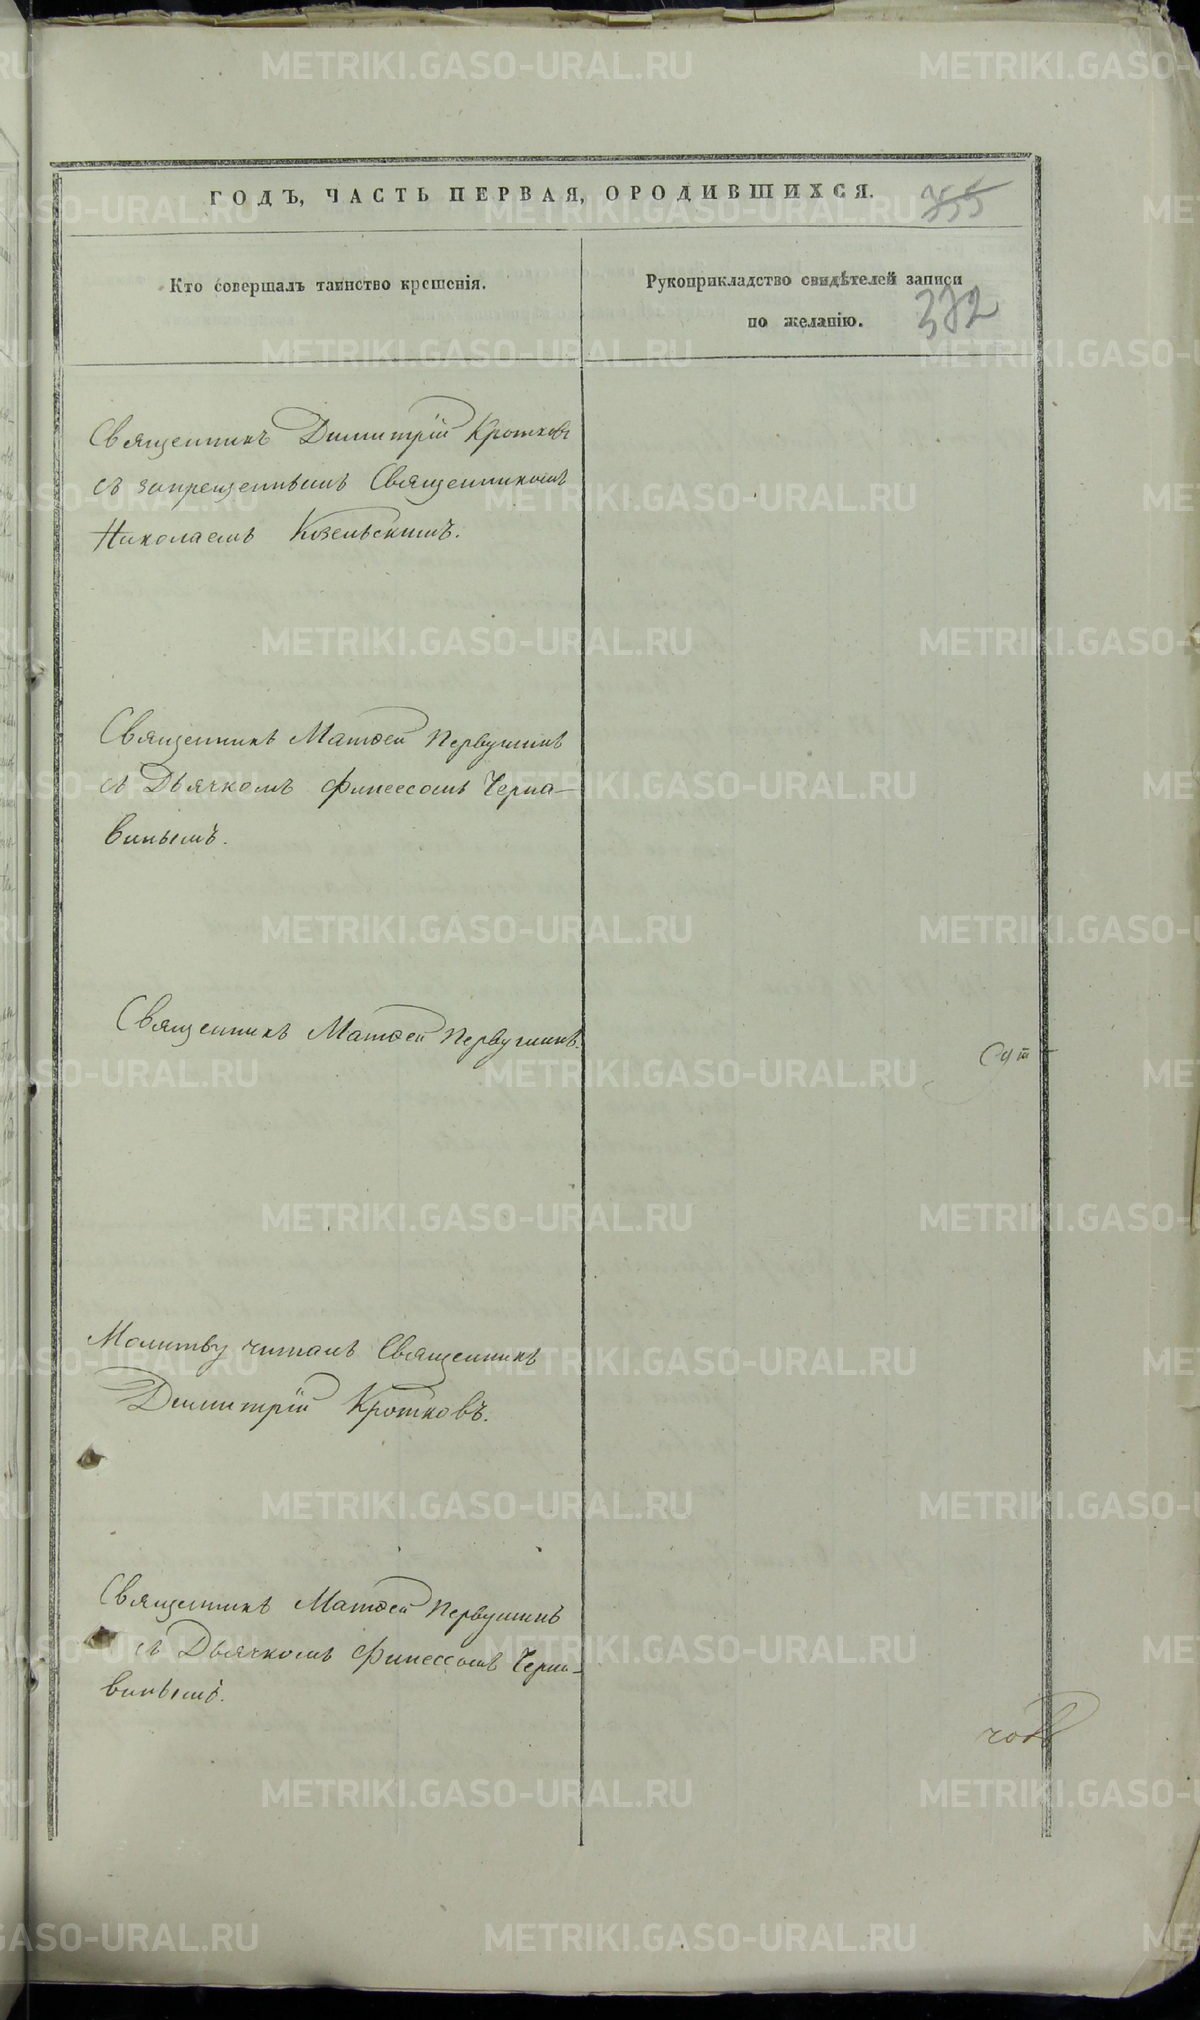 ГОДЪ, ЧАСТЬ ПЕРВАЯ, ОРОДИВШИХСЯ.
355
Кто совершалъ таинство крещенія.
Рукоприкладство свидѣтелей записи
по желанію.
332
Священникъ Димитрій Кротковъ
съ запрещеннымъ Священникомъ
Николаемъ Козельскимъ.
Священникъ Матѳей Первушинъ
съ Дьячкомъ Финеесомъ Черна-
винымъ.
Священникъ Матѳей Первушинъ.
Молитву читалъ Священникъ
Димитрій Кротковъ.
Священникъ Матѳей Первушинъ
съ Дьячкомъ Финеесомъ Черна-
винымъ.
METRIKI.GASO-URAL.RU